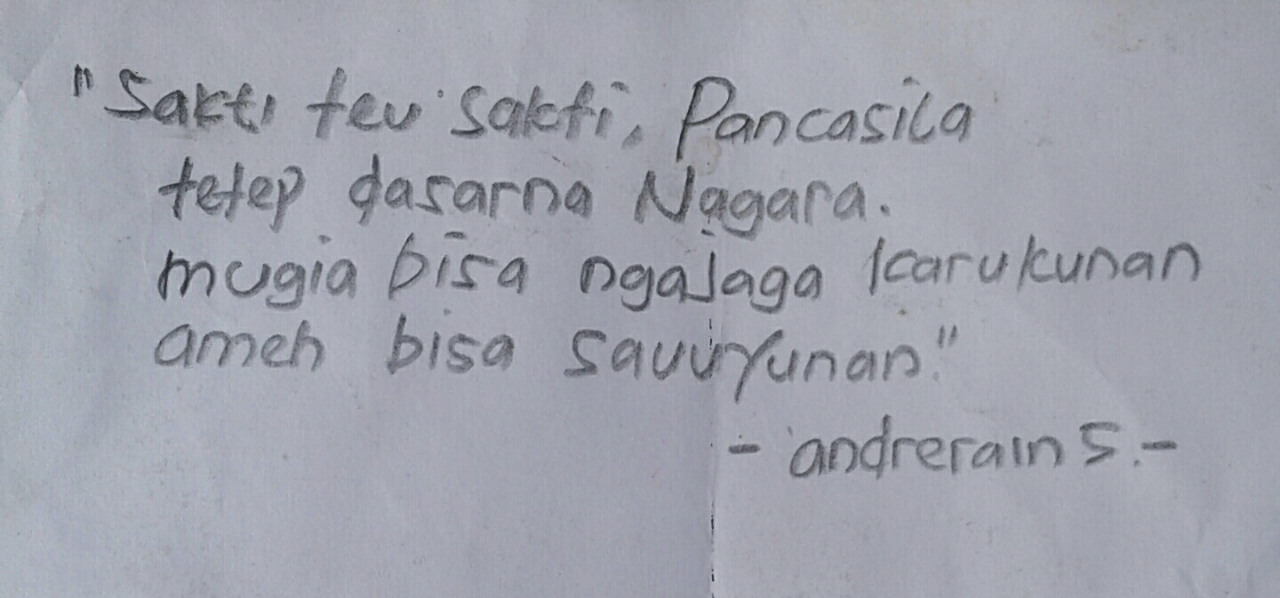 "Sakti teu sakti, Pancasila
tetep dasarna Nagara.
mugia bisa ngajaga karukunan
ameh bisa sauuyunan."
- andrerain S.-